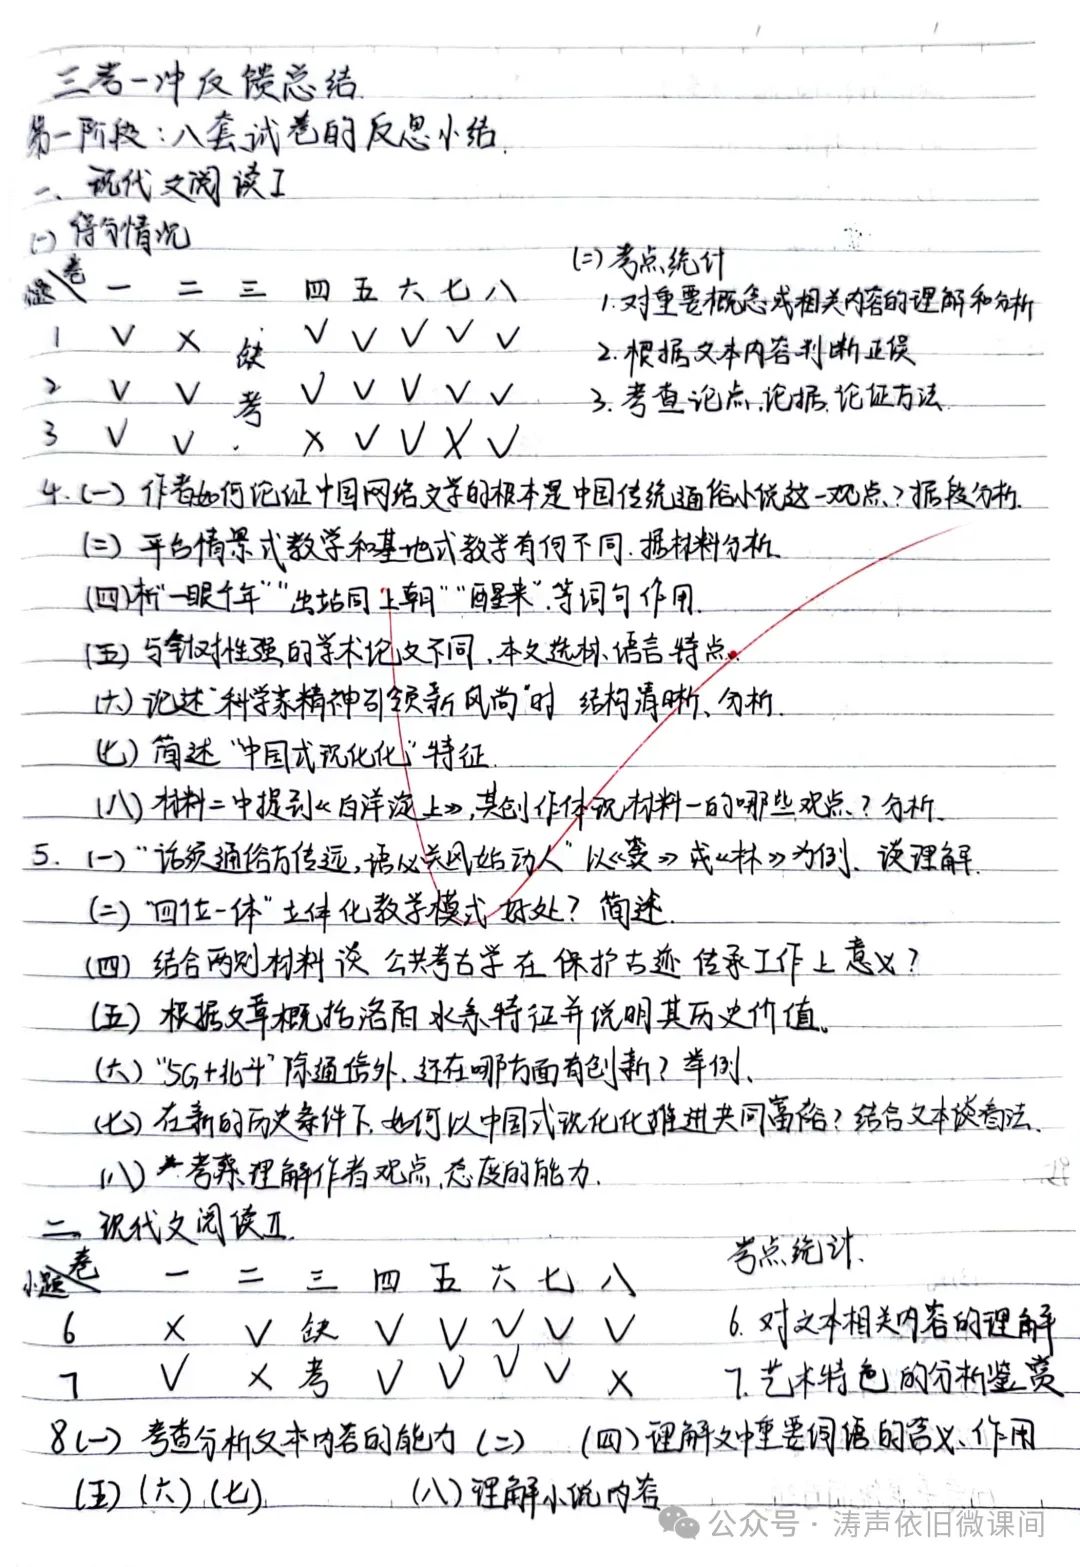 三考一冲反馈总结
第一阶段：八套试卷的反思小结.
一、现代文阅读I
(一)得分情况
(二)考点统计
小题 卷 一 二 三 四 五 六 七 八
1.对重要概念或相关内容的理解和分析
1 √ × 缺 √ √ √ √ √
2.根据文本内容判断正误
2 √ √ 考 √ √ √ √ √
3.考查论点.论据.论证方法.
3 √ √ × √ √ × √
4.(一)作者如何论证中国网络文学的根本是中国传统通俗小说这一观点?据段分析.
(二)平台情景式教学和基地式教学有何不同.据材料分析.
(四)析"一眼千年""出站同上朝""醒来".等词句作用.
(五)与针对性强的学术论文不同.本文选材、语言特点.
(六)论述"科学家精神引领新风尚"时 结构清晰、分析.
(七)简述"中国式现代化"特征.
(八)材料二中提到《白洋淀上》,其创作体现材料一的哪些观点?分析.
5.(一)"话须通俗方传远,语必关风始动人"以《囊》或《林》为例、谈理解.
(二)"四位一体"立体化教学模式好处?简述.
(四)结合两则材料谈公共考古学在保护古迹传承工作上意义?
(五)根据文章概括洛阳水系特征并说明其历史价值。
(六)"5G+北斗"除通信外.还在哪方面有创新?举例、
(七)在新的历史条件下.如何以中国式现代化推进共同富裕?结合文本谈看法、
(八)*考察理解作者观点.态度的能力.
二、现代文阅读II.
考点统计.
小题 卷 一 二 三 四 五 六 七 八
6 × √ 缺 √ √ √ √ √
6.对文本相关内容的理解
7 √ × 考 √ √ √ √ ×
7.艺术特色的分析鉴赏
8(一)考查分析文本内容的能力(二) (四)理解文中重要词语的含义、作用
(五)(六)(七) (八)理解小说内容
公众号·涛声依旧微课间